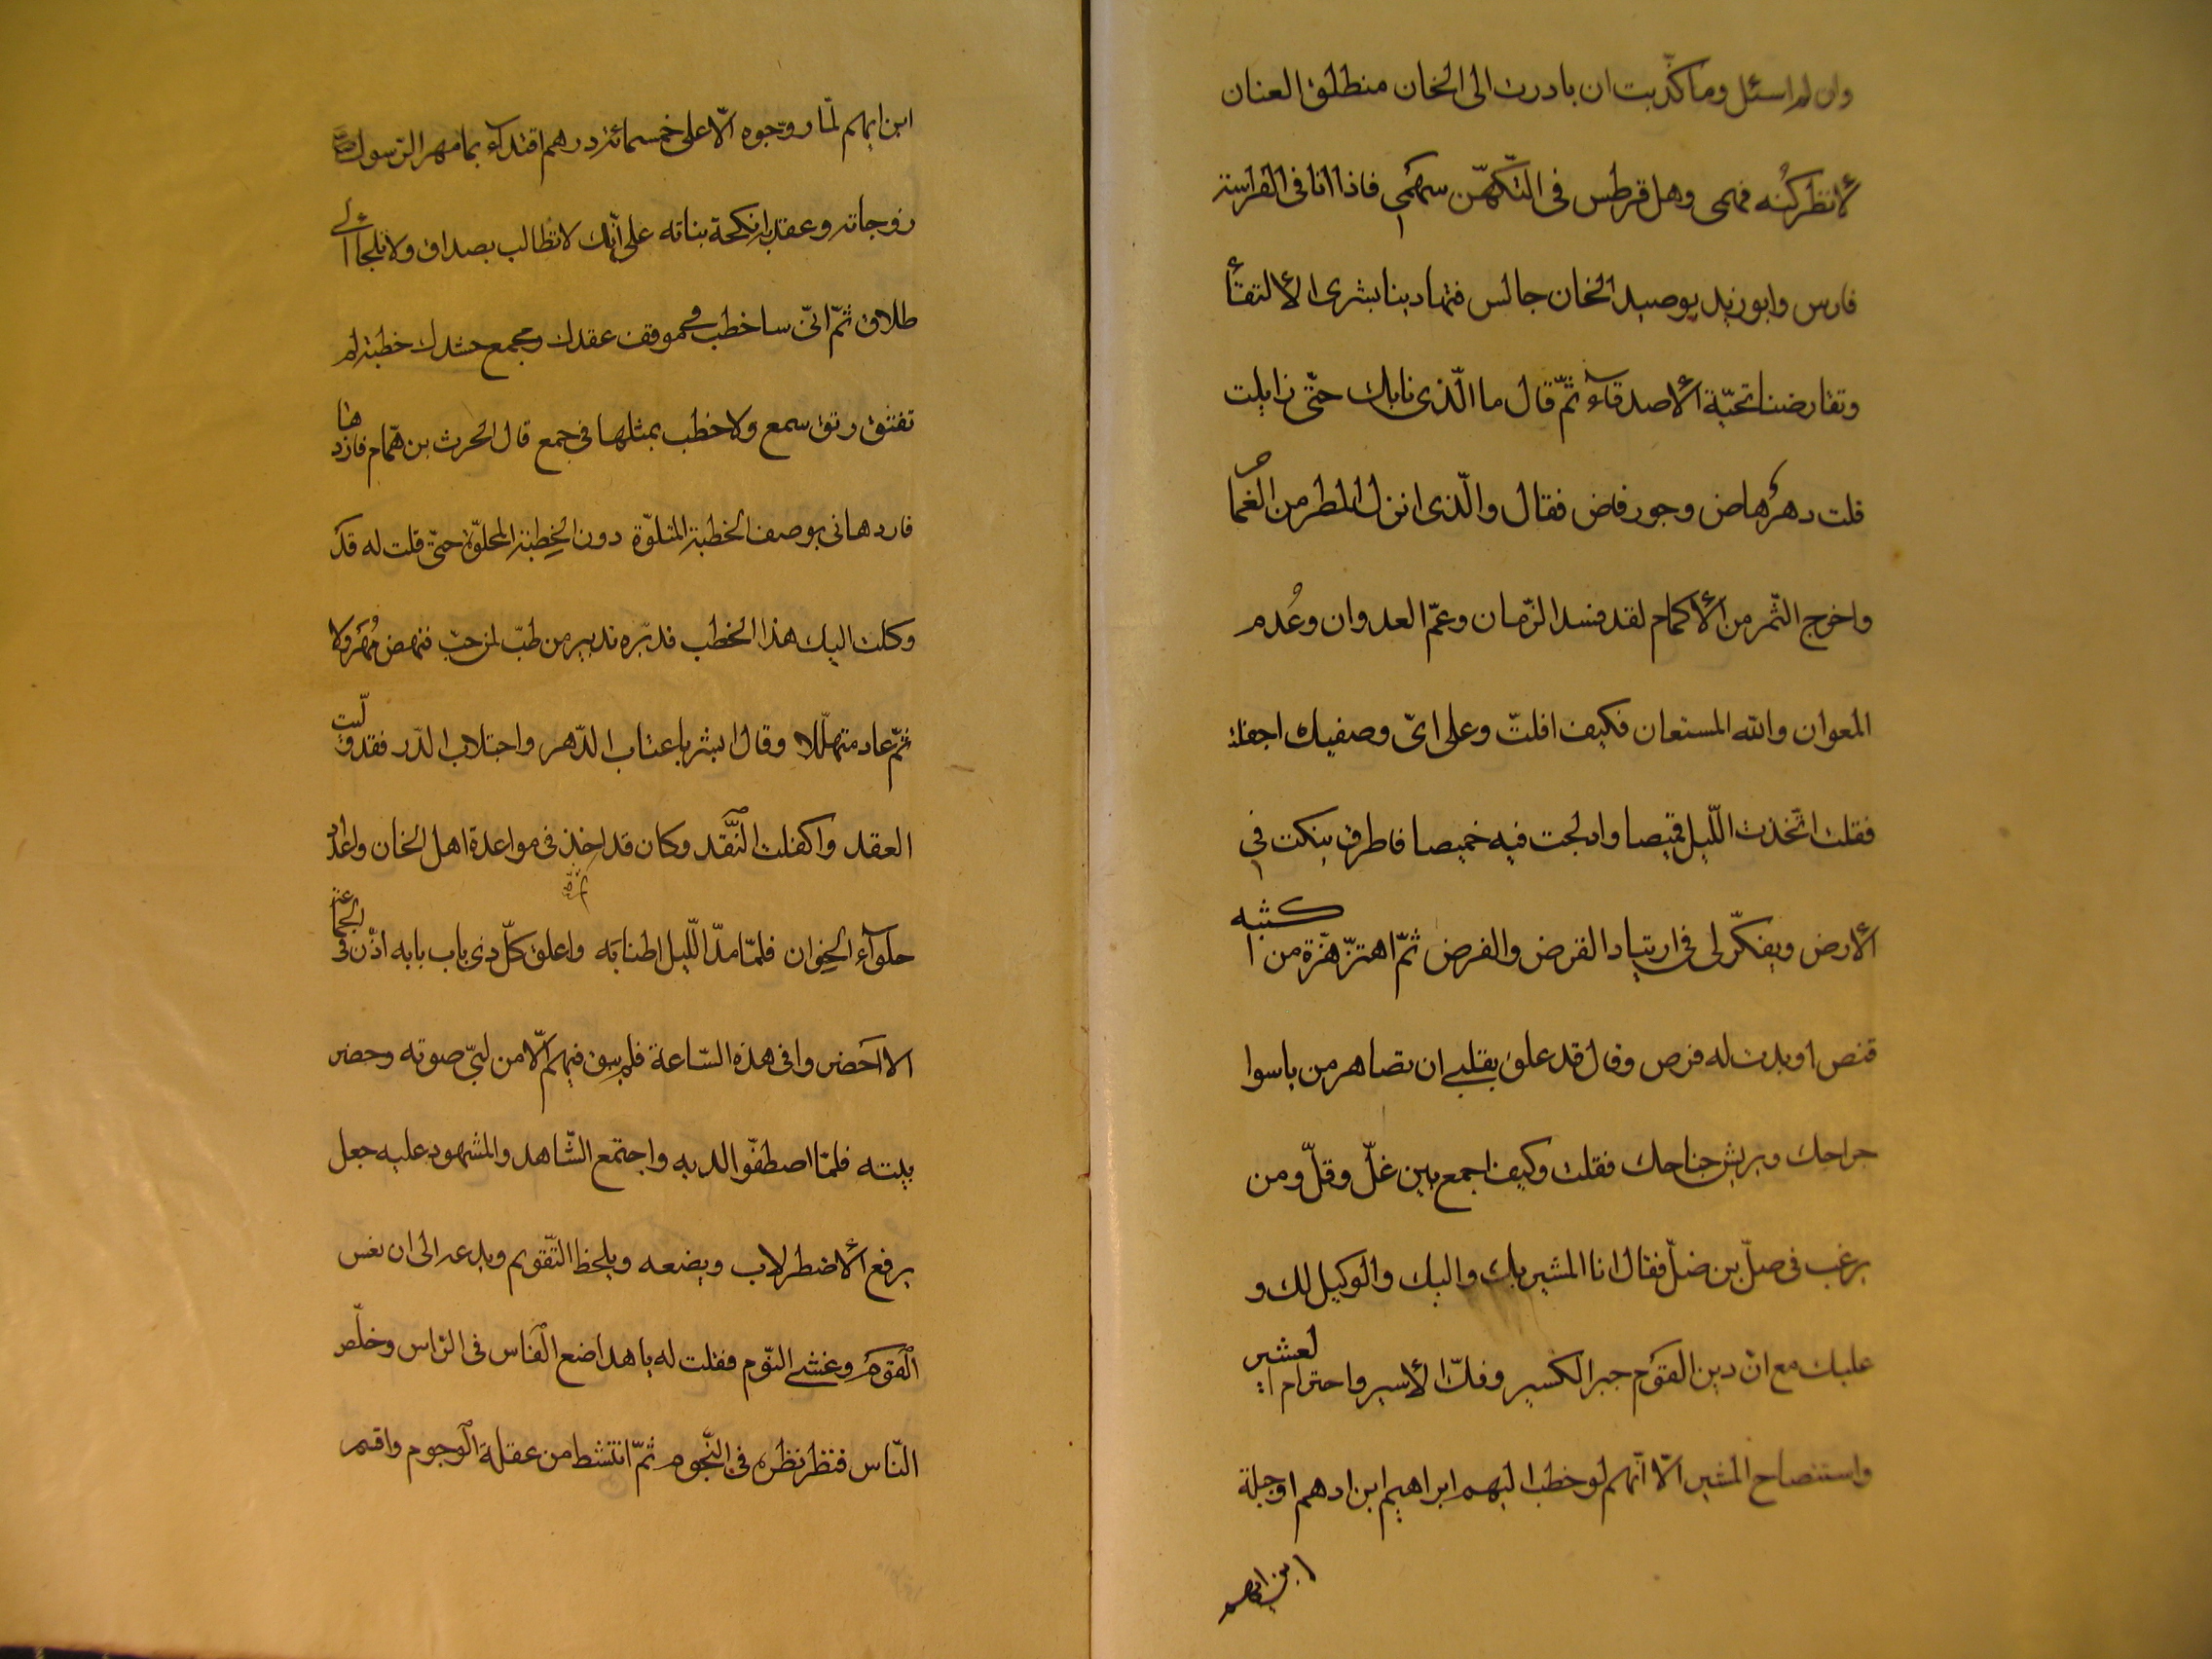 وان لم اسئل وما كذّبت ان بادرت الى الخان منطلق العنان
لأنظر كُنه فهمى وهل قرطس فى التّكهّن سهمى فاذا انا فى الفراسة
فارس وابوزيد بوصيد الخان جالس فتهادينا بشرى الألتقآء
وتقارضنا تحيّة الأصدقآء ثمّ قال ما الّذى نابك حتّى زايلت
قلت دهر هاض وجور فاض فقال والّذى انزل المطر من الغمام
واخرج الثّمر من الأكمام لقد فسد الزّمان وعمّ العدوان وعُدم
المعوان والله المستعان فكيف افلتّ وعلى اىّ وصفيك اجفلت
فقلت اتّخذت اللّيل قميصا وادلجت فيه خميصا فاطرق ينكت فى
الأرض ويفكّر لى فى ارتياد القرض والفرض ثمّ اهتزّ هزّة من اكثبه
قنص او بدت له فرص وقال قد علق بقلبى ان تصاهر من ياسوا
جراحك ويريش جناحك فقلت وكيف اجمع بين غلّ وقلّ ومن
يرغب فى صلّ بن ضلّ فقال انا المشير بك واليك والوكيل لك و
عليك مع انّ دين القوم جبر الكسير وفكّ الأسير واحترام العشير
واستنصاح المشير الّا انّهم لو خطب اليهم ابراهيم ابن ادهم او جبلة
ابن ايهم
ابن ايهم لمّا زوّجوه الّا على خمسمائة درهم اقتدآء بما مهر الرّسول ص
زوجاته وعقد به انكحة بناته على انّك لا تطالب بصداق ولا تلجأ الى
طلاق ثمّ انّى ساخطب فى موقف عقدك ومجمع حشدك خطبة لم
تفتق رتق سمع ولا خطب بمثلها فى جمع قال الحرث بن همّام فازدها
فاردهانى بوصف الخطبة المتلوّة دون الخِطبة المجلوّة حتّى قلت له قد
وكلت اليك هذا الخطب فدبّره تدبير من طبّ لمن حبّ فنهض مُهَرولا
ثمّ عاد متهلّلا وقال ابشر باعتاب الدّهر واحتلاب الدّر فقد ولّيت
العقد واكفلت النّقد وكان قد اخذ فى مواعدة اهل الخان واعداد
حلوآء الخِوان فلمّا مدّ اللّيل اطنابَه واغلق كلّ ذى باب بابه اذّن فى الجماعة
الا احضروا فى هذه السّاعة فلم يبق فيهم الّا من لبّى صوته وحضر
بيته فلمّا اصطفّوا لديه واجتمع الشّاهد والمشهود عليه جعل
يرفع الأضطرلاب ويضعه ويلحظ التّقويم ويدعه الى ان نعس
القوم وغشى النّوم فقلت له يا هذا ضع الفاس فى الرّاس وخلّص
النّاس فنظر نظره فى النّجوم ثمّ انتشط من عقلة الوجوم واقسم